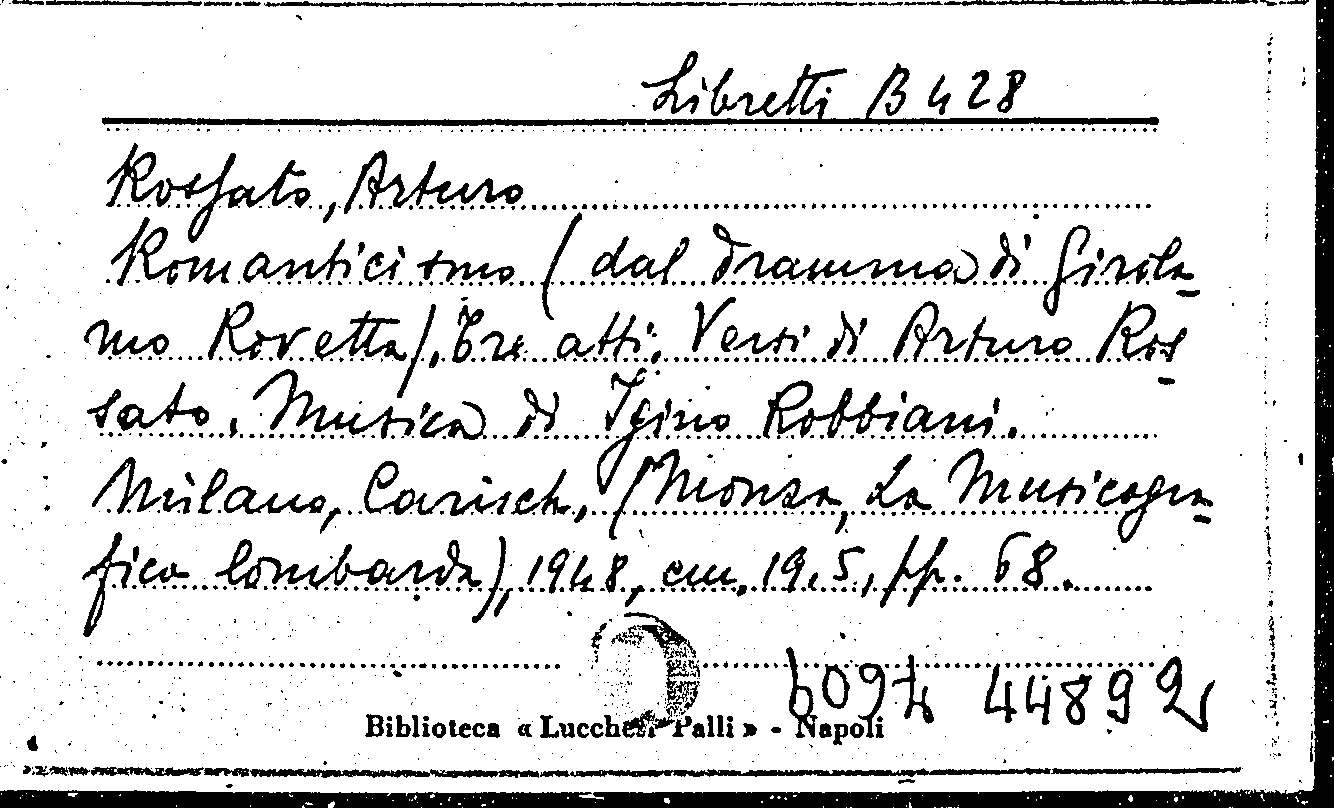 Libretti B 428
Rossato, Arturo
Romanticismo (dal dramma di Girola-
mo Rovetta). Tre atti. Versi di Arturo Ros-
sato. Musica di Igino Robbiani.
Milano, Carisch, (Monza, La Musicogra-
fica lombarda), 1948, cm. 19.5, pp. 68.
6094 44892
Biblioteca « Lucchesi Palli » - Napoli